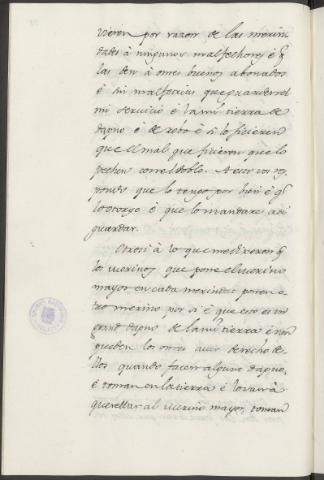 dieren por razon de las merin
dades à ningunos malfechores è q̃
las den à omes buenos abonados
è sin malfecias que guarden el
mi servicio è la mi tierra de
dapno è de robo è si lo ficieren
que el mal que ficieren que lo
pechen con el doblo. A esto vos res
pondo que lo tengo por bien è q̃
lo otorgo è que lo mandare asi
guardar.
Otrosi à lo que me dixeron q̃
los merinos que pone el merino
mayor en cada merindat ponen o
tro merino por si è que esto es mui
grand dapno de la mi tierra è non
pueden los omes aver derecho de
llos quando facen algund dapno,
è toman en la tierra è lo van à
querellar al merino mayor, toman